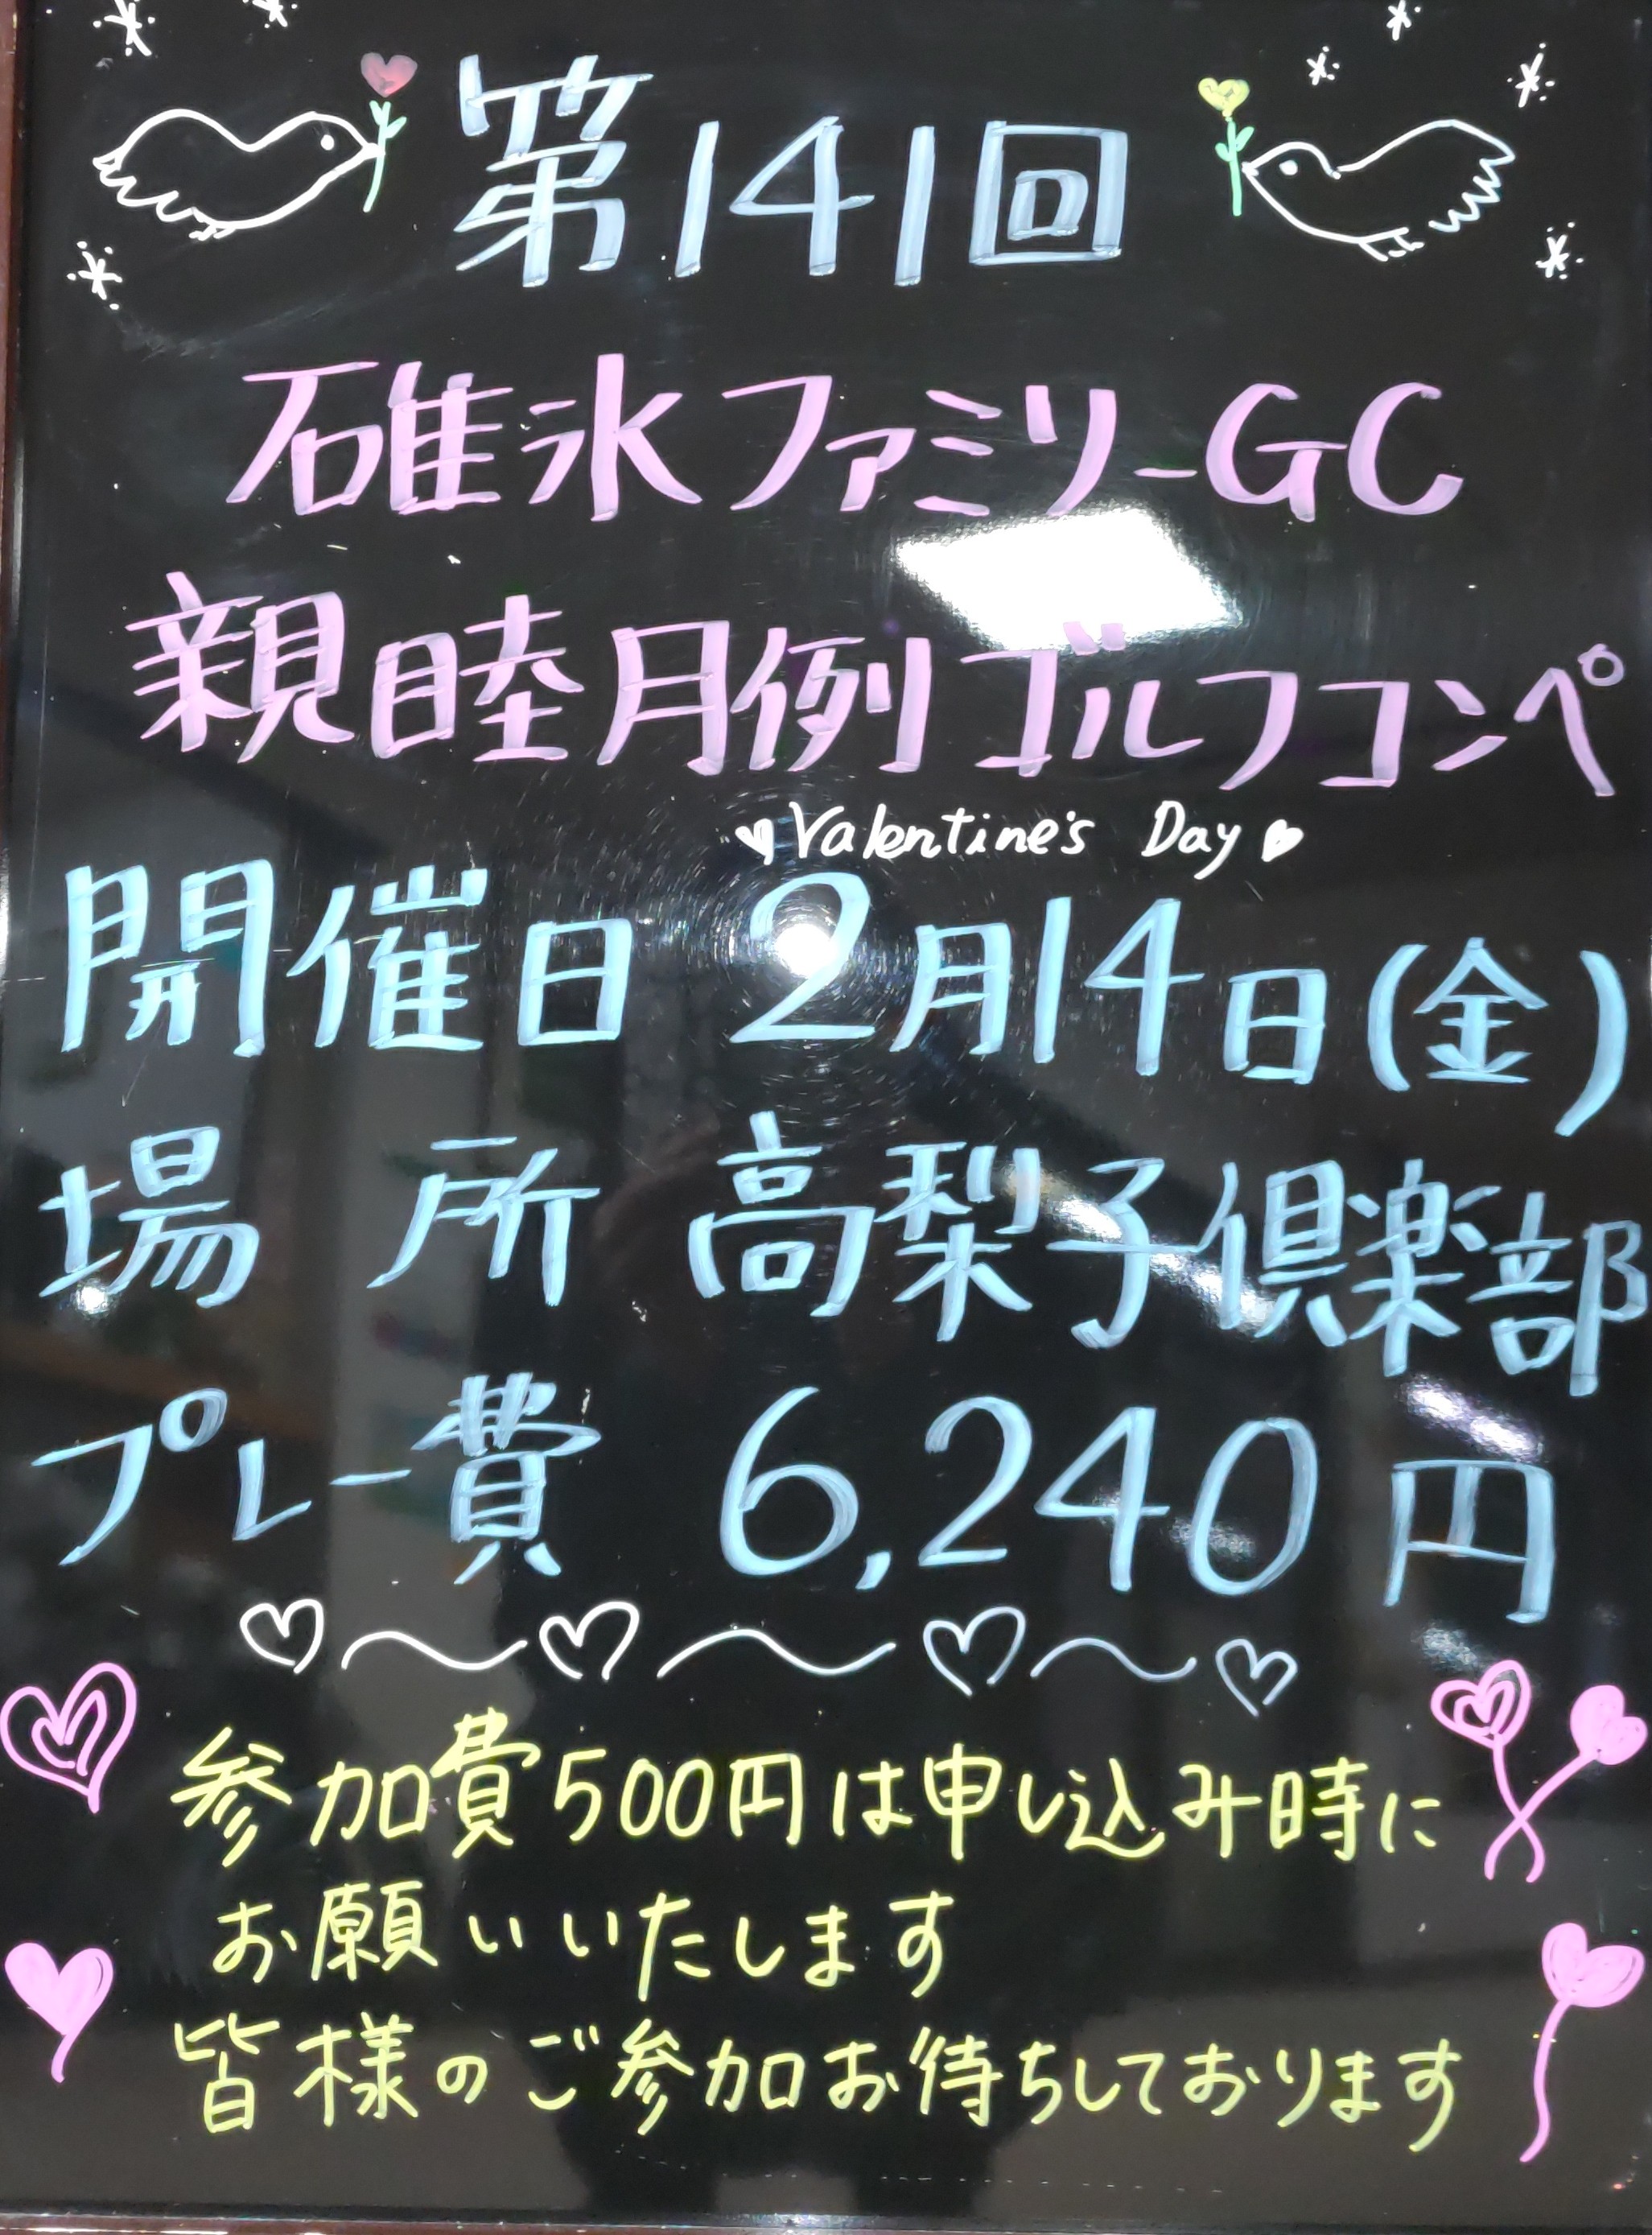 第141回
碓氷ファミリーGC
親睦月例ゴルフコンペ
Valentine's Day
開催日 2月14日(金)
場所 高梨子倶楽部
プレー費 6,240円
参加費500円は申し込み時に
お願いいたします
皆様のご参加お待ちしております